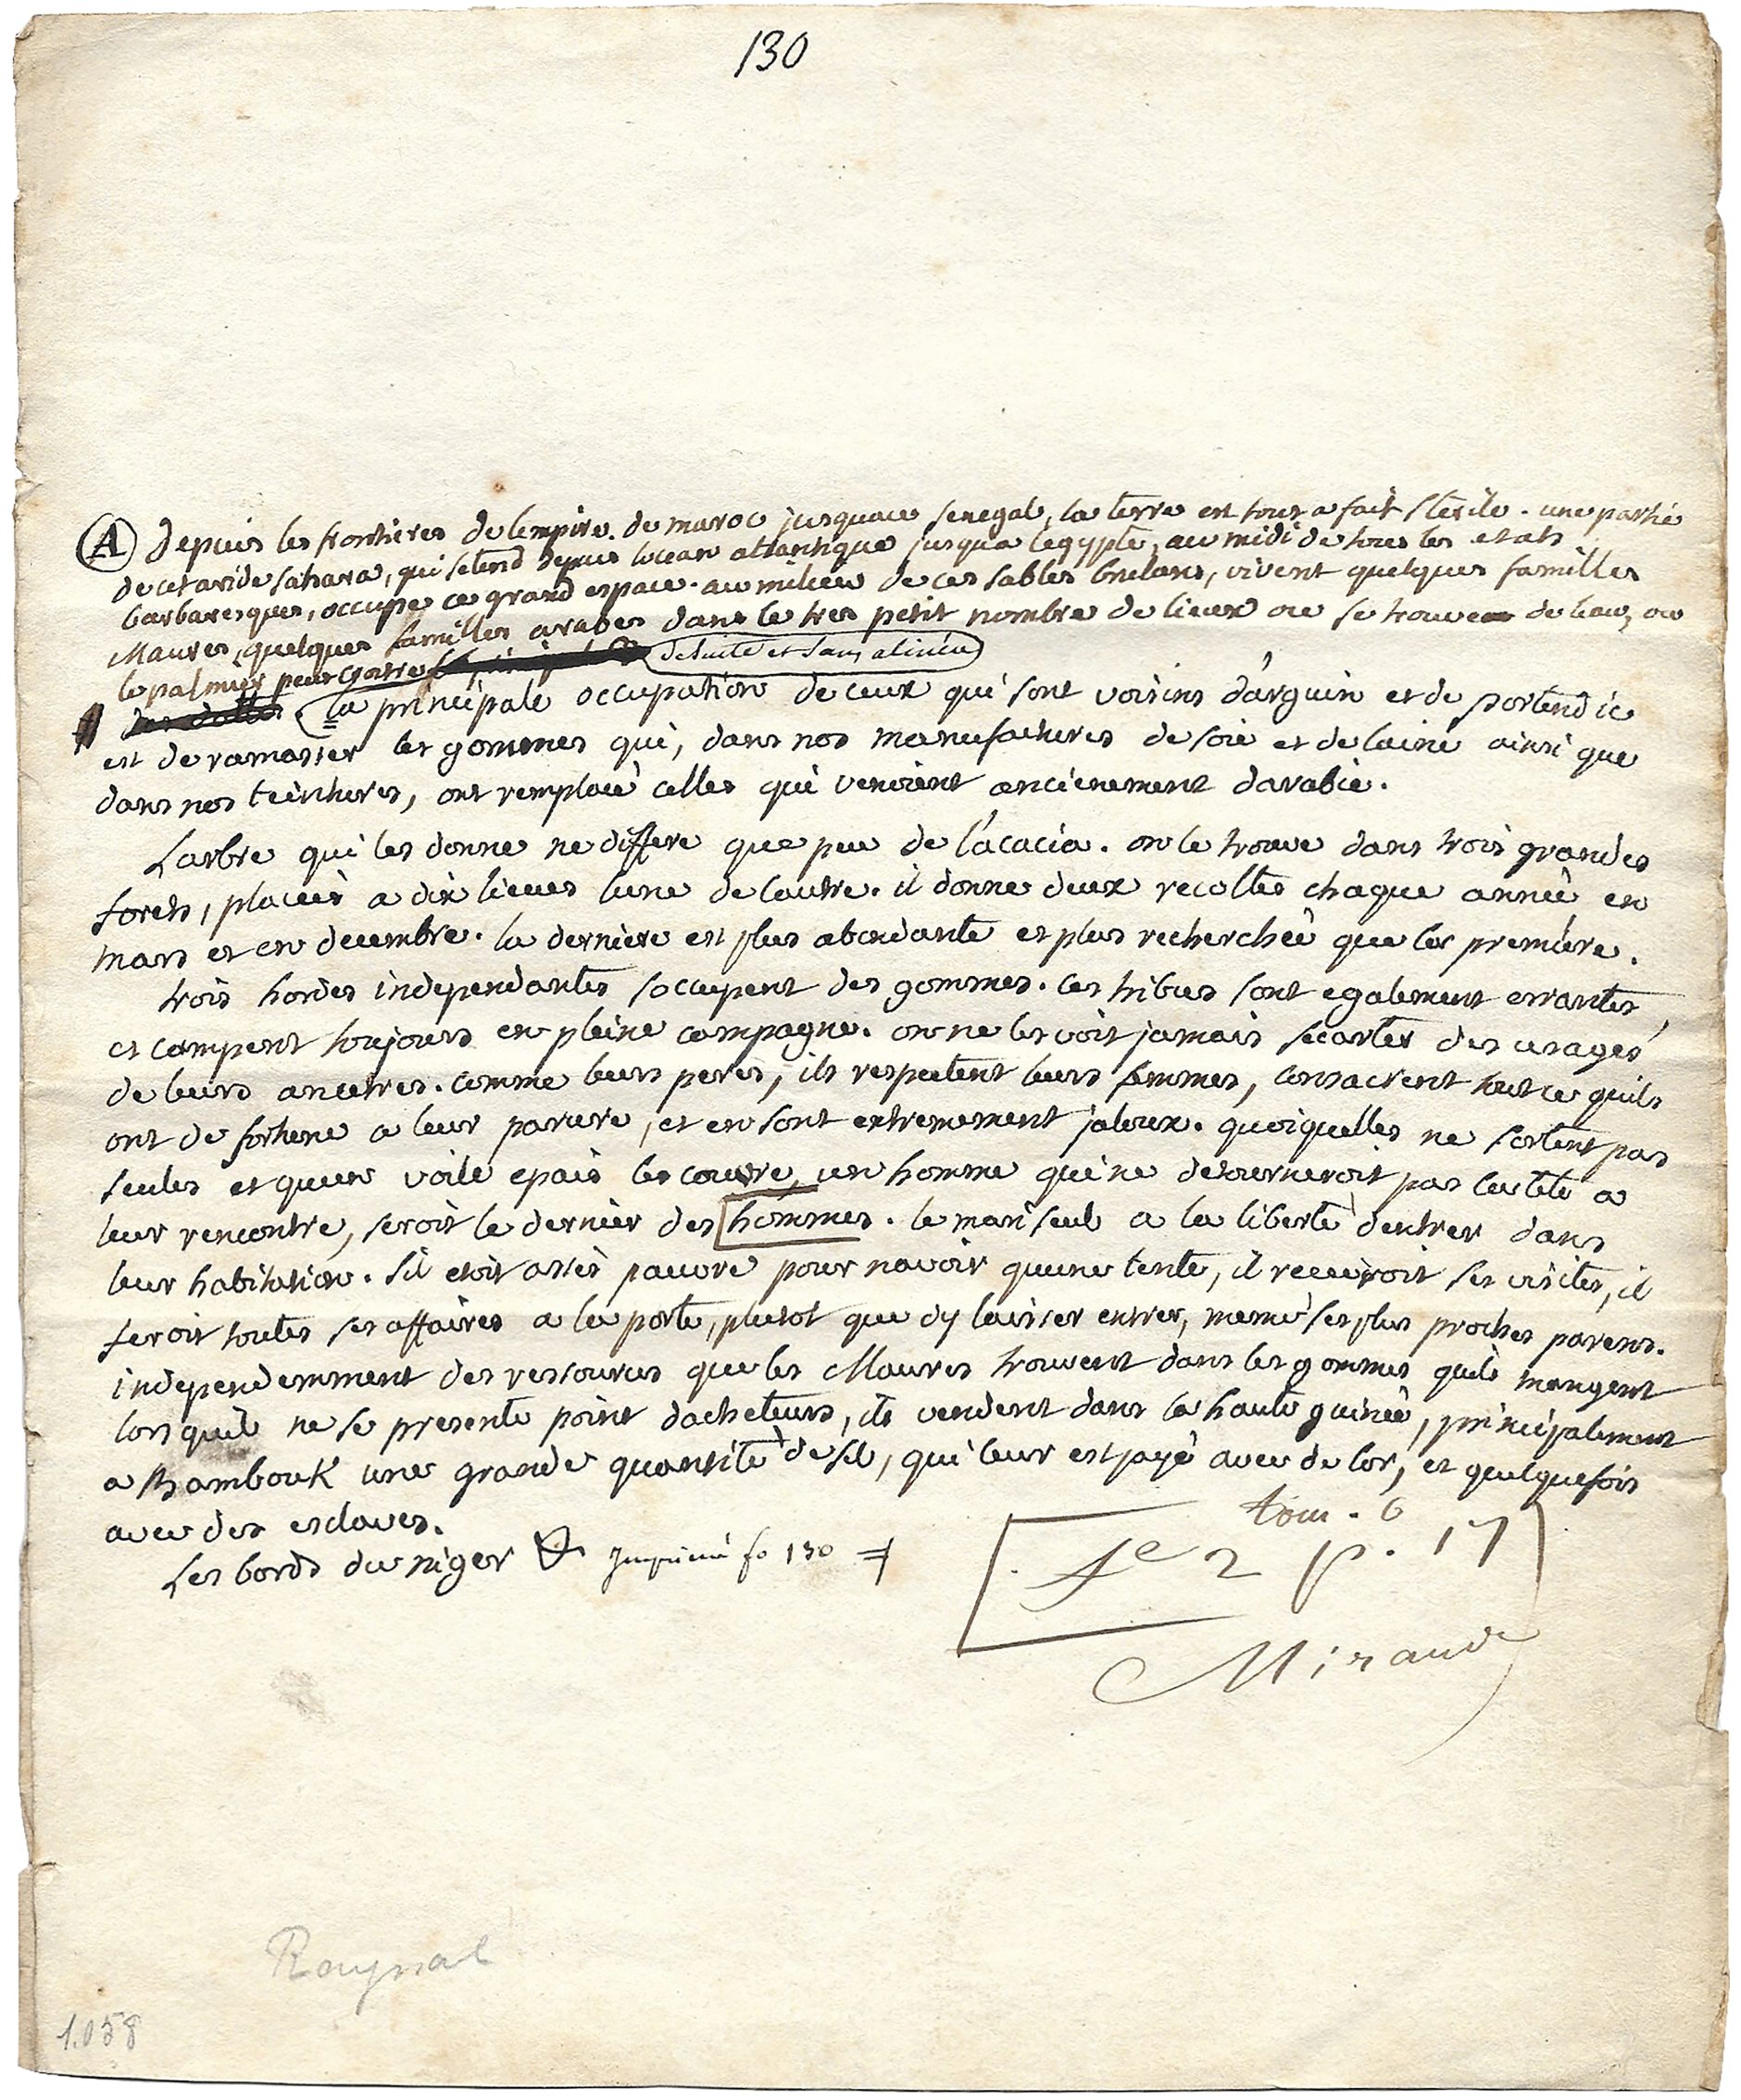 130
A Depuis les frontieres de lempire de maroc jusquau senegal, la terre est tout a fait sterile. une partie
de cet aride sahara, qui setend depuis locean atlantique jusqua legypte, au midi de tous les etats
barbaresques, occupe ce grand espace. au milieu de ces sables brulans, vivent quelques familles
Maures, quelques familles arabes dans le tres petit nombre de lieux ou se trouve de leau, ou
le palmier peut croitre De suite et sans alinéa
la principale occupation de ceux qui sont voisins darguin et de portendic
est de ramasser les gommes qui, dans nos manufactures de soie et de laine ainsi que
dans nos teintures, ont remplacé celles qui venoient anciènement darabie.
Larbre qui les donne ne differe que peu de lácacia. on le trouve dans trois grandes
forets, placées a dix lieues lune de lautre. il donne deux recoltes chaque année en
mars et en decembre. la derniere est plus abondante et plus recherchée que la premiere.
trois hordes independantes soccupent des gommes. ces tribus sont egalement errantes
et campent toujours en pleine campagne. on ne les voit jamais secarter des usages
de leurs ancetres. comme leurs peres, ils respectent leurs femmes, consacrent tout ce quils
ont de fortune a leur parure, et en sont extremement jaloux. quoiquelles ne sortent pas
seules et quun voile epais les couvre, un homme qui ne detourneroit pas la tete a
leur rencontre, seroit le dernier des hommes. le mari seul a la liberté dentrer dans
leur habitation. sil etoit assés pauvre pour navoir quune tente, il recevroit ses visites, il
feroit toutes ses affaires a la porte, plutot que dy laisser entrer, meme ses plus proches parens.
independemment des ressources que les Maures trouvent dans les gommes quils mangent
lors quil ne se presente point dacheteurs, ils vendent dans la haute guinée, principalement
a Bambouk une grande quantité de sel, qui leur est payé avec de lor, et quelquefois
avec des esclaves.
Les bords du niger Imprimé fo 130
tom. 6
fe 2 p. 17
Miraud
Raynal
1.058